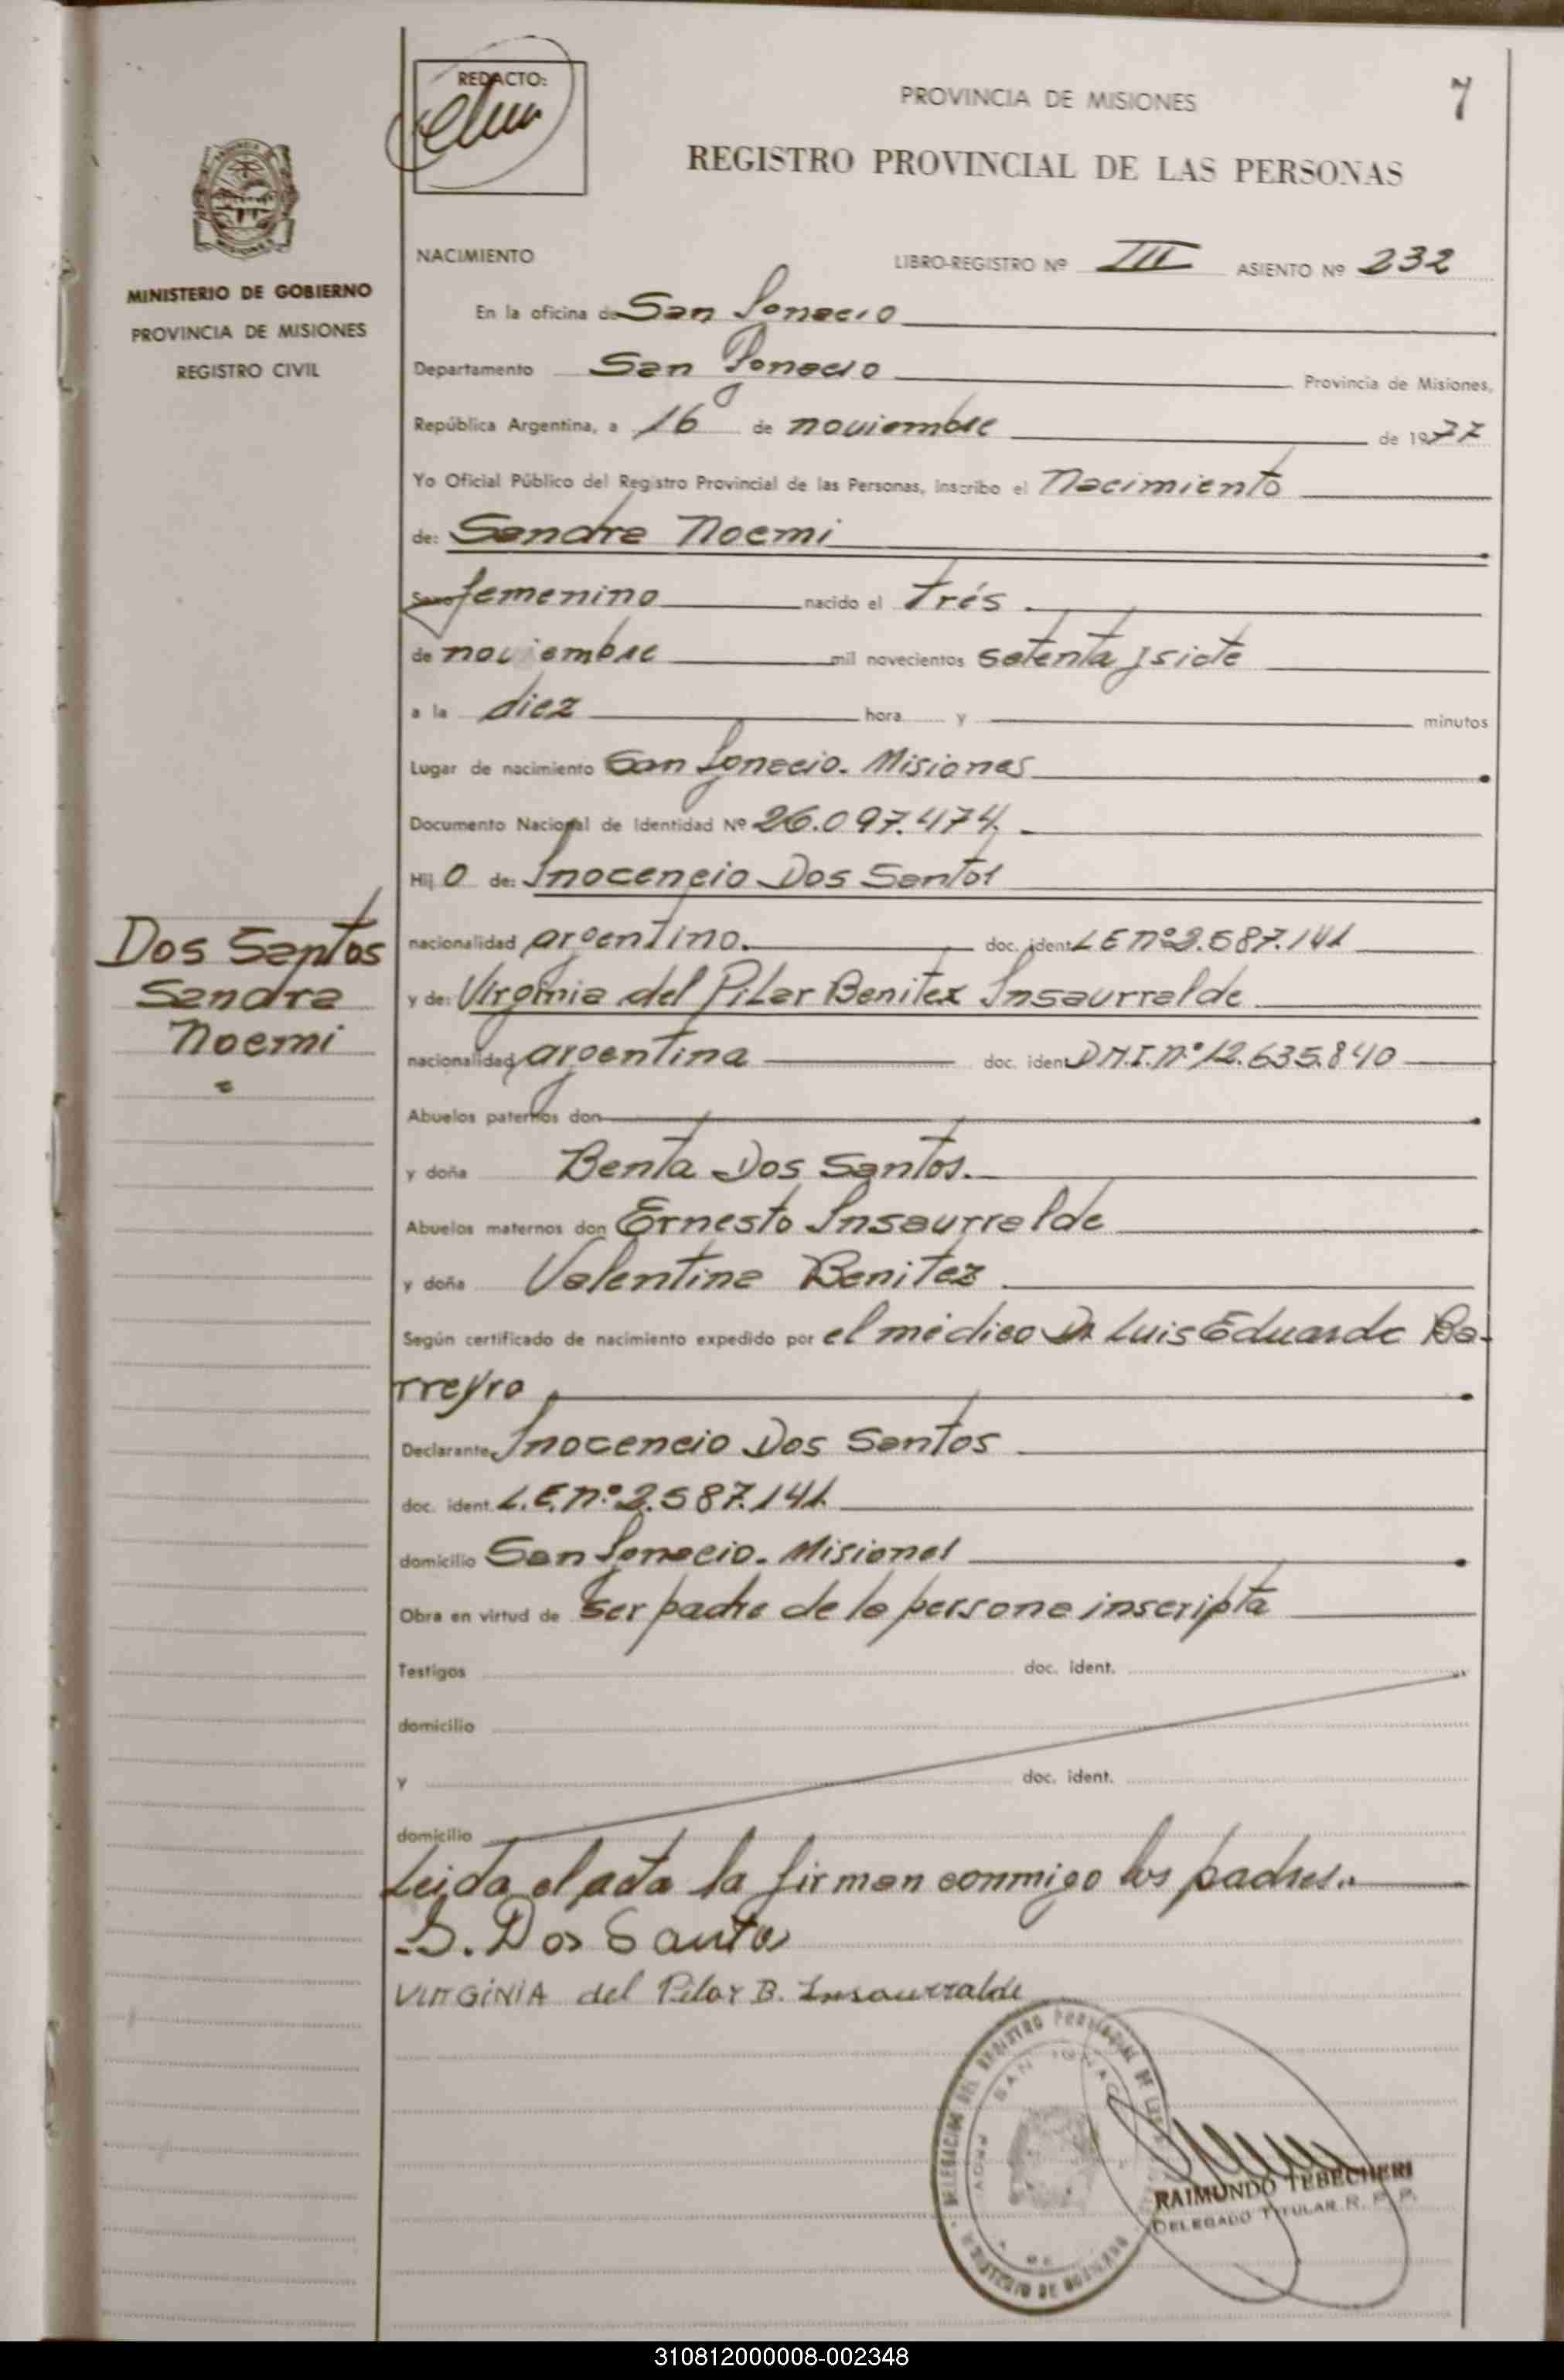 REDACTO:
PROVINCIA DE MISIONES
7
REGISTRO PROVINCIAL DE LAS PERSONAS
MINISTERIO DE GOBIERNO
PROVINCIA DE MISIONES
REGISTRO CIVIL
NACIMIENTO LIBRO-REGISTRO Nº III ASIENTO Nº 232
En la oficina de San Ignacio
Departamento San Ignacio Provincia de Misiones,
República Argentina, a 16 de noviembre de 1977
Yo Oficial Público del Registro Provincial de las Personas, inscribo el Nacimiento
de: Sandra Noemi
Sexo femenino nacido el Trés
de noviembre mil novecientos setenta y siete
a la diez hora y minutos
Lugar de nacimiento San Ignacio. Misiones
Documento Nacional de Identidad Nº 26.097.474.
Hij o de: Inocencio Dos Santos
nacionalidad argentino. doc. ident. L E nº 2.587.141
Dos Santos
Sandra
Noemi
y de: Virginia del Pilar Benitez Insaurralde
nacionalidad argentina doc. ident. D.N.I. nº 12.635.840
Abuelos paternos don
y doña Benta Dos Santos.
Abuelos maternos don Ernesto Insaurralde
y doña Valentina Benitez
Según certificado de nacimiento expedido por el médico Dr Luis Eduardo Ba-
rreyro
Declarante Inocencio Dos Santos
doc. ident. L.E. nº 2.587.141
domicilio San Ignacio. Misiones
Obra en virtud de ser padre de la persona inscripta
Testigos doc. ident.
domicilio
y doc. ident.
domicilio
Leida el acta la firman conmigo los padres.
Dos Santos
VIRGINIA del Pilar B. Insaurralde
DELEGACION DEL REGISTRO PROVINCIAL DE LAS
SAN IGNACIO
PROV
MINISTERIO DE GOBIERNO
RAIMUNDO TEBECHERI
DELEGADO TITULAR R. P. P.
310812000008-002348